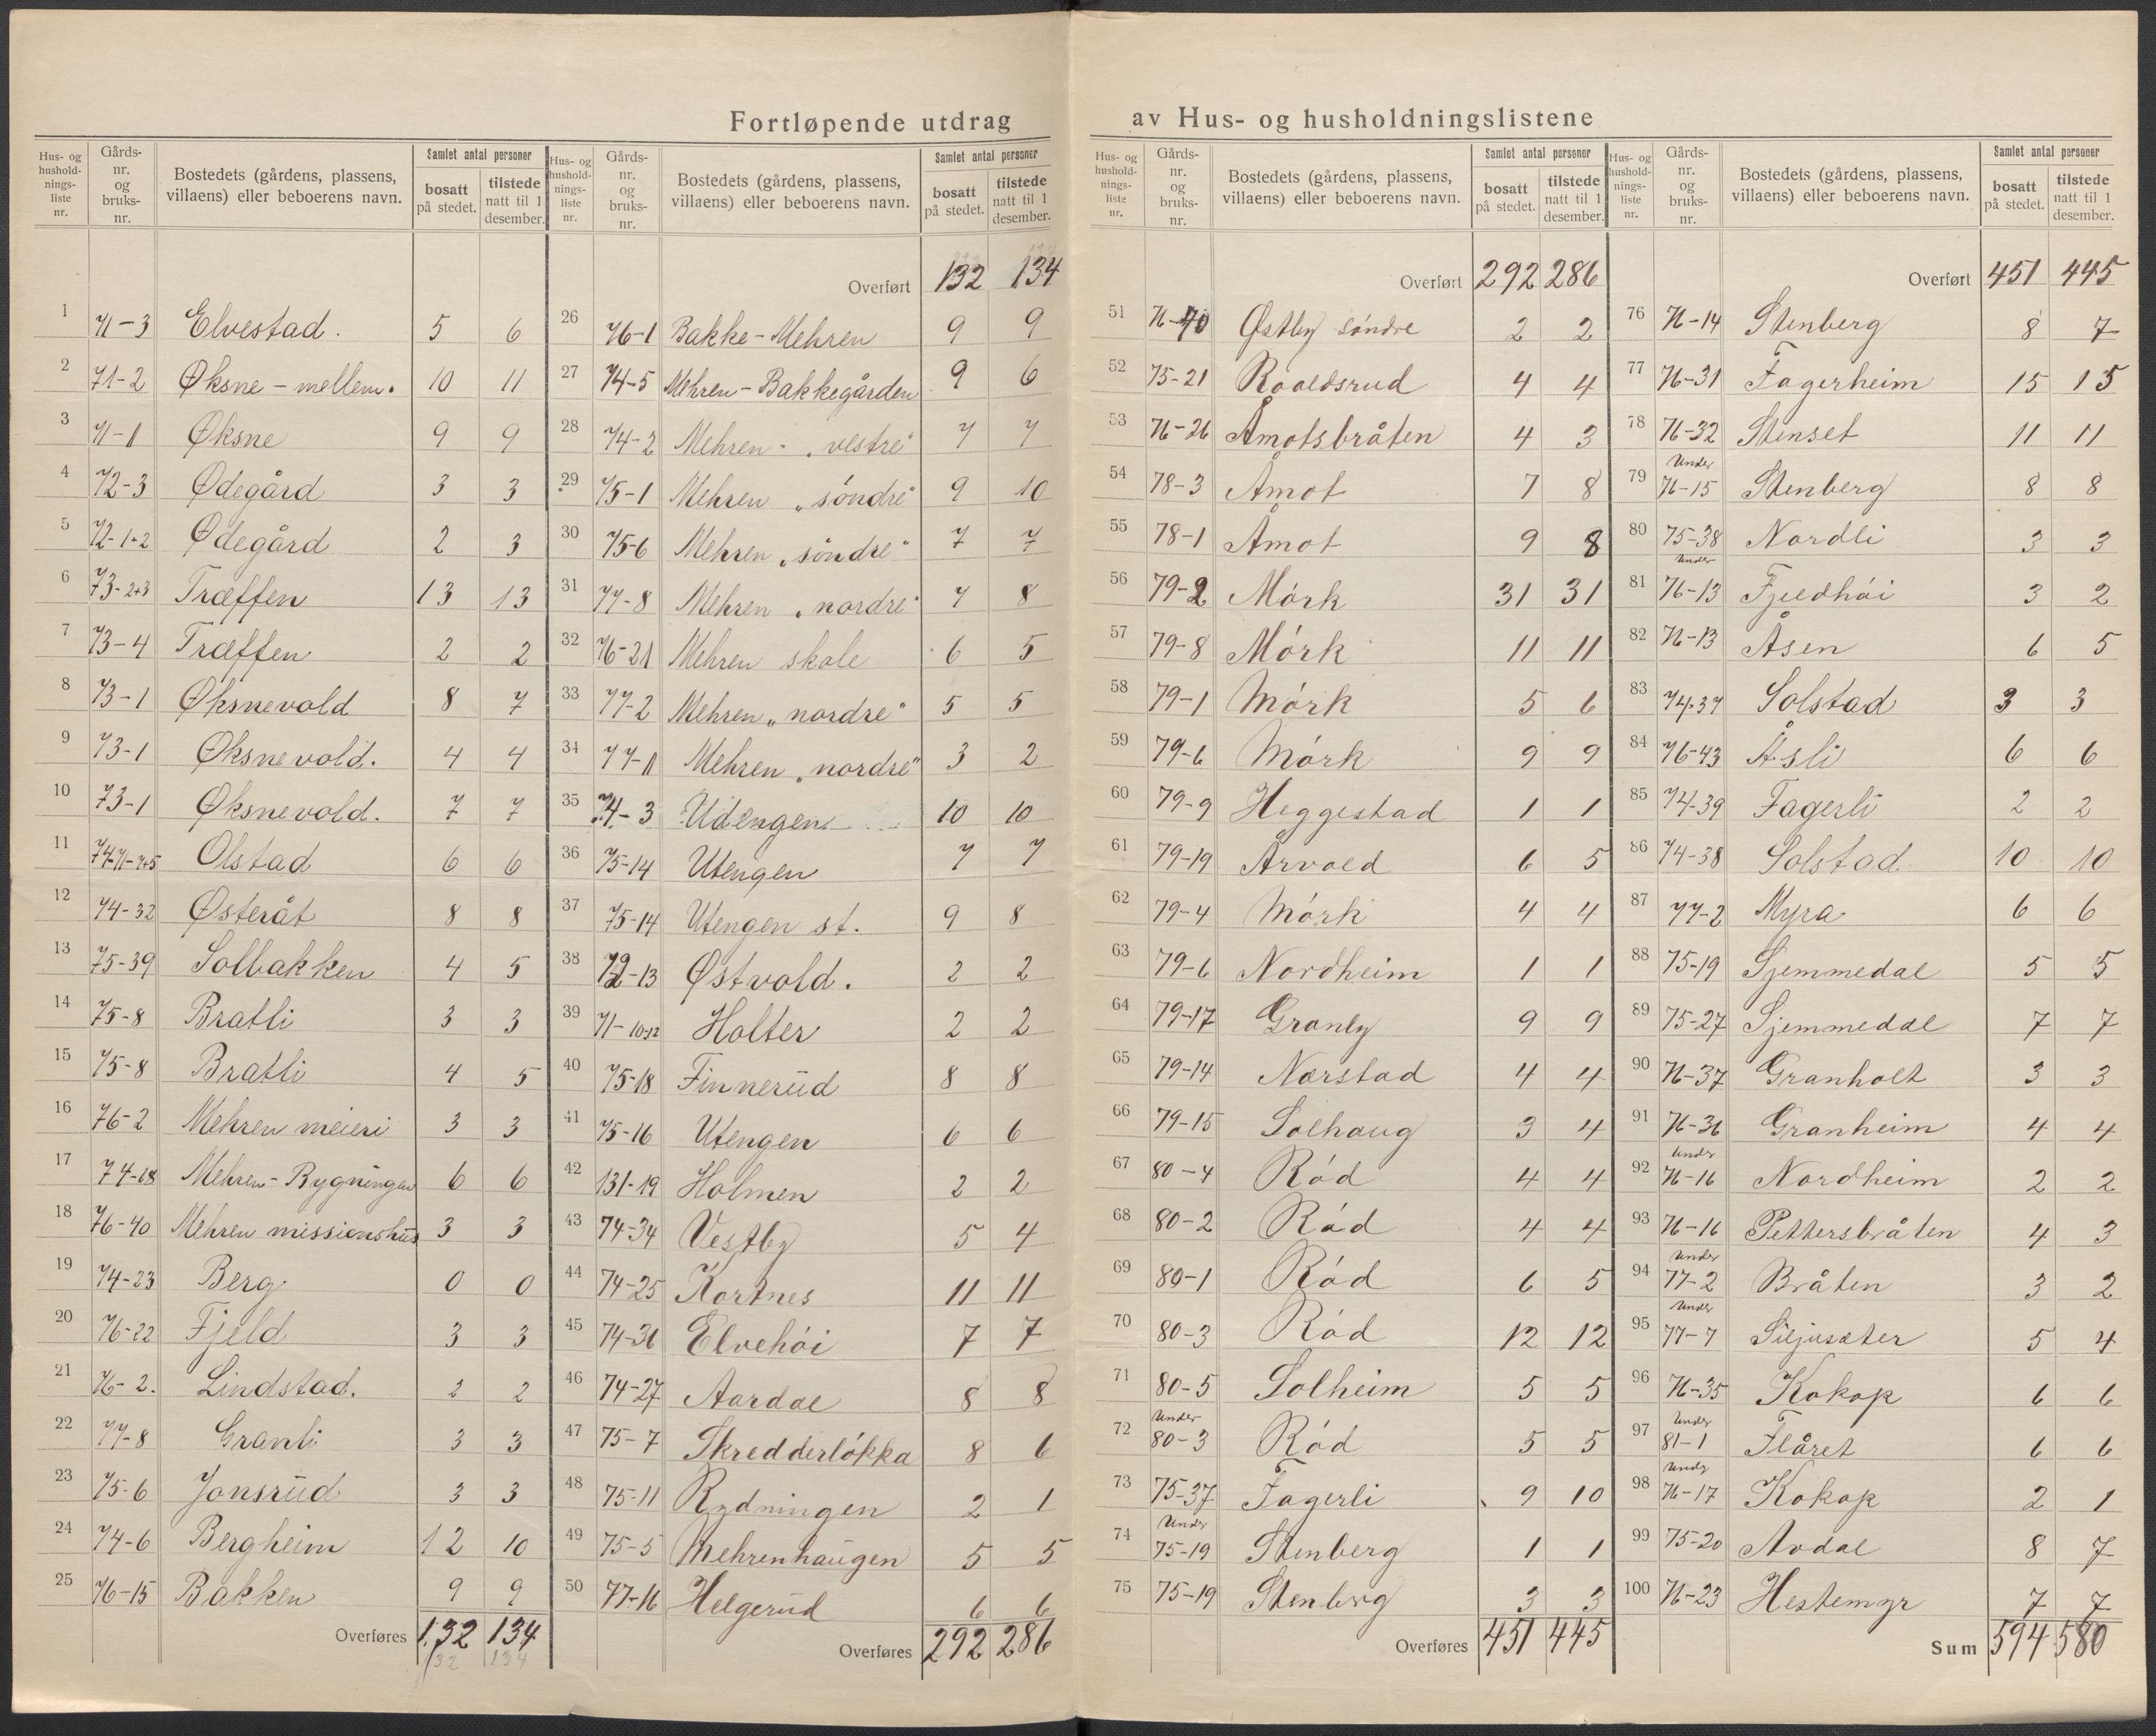 Fortløpende utdrag av Hus- og husholdningslistene
Hus- og husholdnings-liste nr. | Gårds-nr. og bruks-nr. | Bostedets (gårdens, plassens, villaens) eller beboerens navn. | Samlet antal personer | bosatt på stedet. | tilstede natt til 1 desember.
1 71-3 Elvestad. 5 6
2 71-2 Øksne - mellem. 10 11
3 71-1 Øksne 9 9
4 72-3 Ødegård 3 3
5 72-1+2 Ødegård 2 3
6 73-2+3 Træffen 13 13
7 73-4 Træffen 2 2
8 73-1 Øksnevold 8 7
9 73-1 Øksnevold. 4 4
10 73-1 Øksnevold. 7 7
11 Olstad 6 6
12 74-32 Østeråt 8 8
13 75-39 Solbakken 4 5
14 75-8 Bratli 3 3
15 75-8 Bratli 4 5
16 76-2 Mehren meieri 3 3
17 74-18 Mehren - Bygningen 6 6
18 76-40 Mehren missionshus 3 3
19 74-23 Berg 0 0
20 76-22 Fjeld 3 3
21 76-2. Lindstad. 2 2
22 77-8 Granli 3 3
23 75-6 Jonsrud 3 3
24 74-6 Bergheim 12 10
25 76-15 Bakken 9 9
Overføres 132 134
132 134
Hus- og husholdnings-liste nr. | Gårds-nr. og bruks-nr. | Bostedets (gårdens, plassens, villaens) eller beboerens navn. | Samlet antal personer | bosatt på stedet. | tilstede natt til 1 desember.
Overført 132 134
26 76-1 Bakke - Mehren 9 9
27 74-5 Mehren - Bakkegården 9 6
28 74-2 Mehren - "vestre" 7 7
29 75-1 Mehren "søndre" 9 10
30 75-6 Mehren "søndre" 7 7
31 77-8 Mehren "nordre" 7 8
32 76-21 Mehren skole 6 5
33 77-2 Mehren "nordre" 5 5
34 77-1 Mehren "nordre" 3 2
35 74-3 Udengen 10 10
36 75-14 Utengen 7 7
37 75-14 Utengen st. 9 8
38 72-13 Østvold. 2 2
39 71-10+12 Holter 2 2
40 75-18 Finnerud 8 8
41 75-16 Utengen 6 6
42 131-19 Holmen 2 2
43 74-34 Vestby 5 4
44 74-25 Kortnes 11 11
45 74-31 Elvehøi 7 7
46 74-27 Aardal 8 8
47 75-7 Skredderløkka 8 6
48 75-11 Rydningen 2 1
49 75-5 Mehrenhaugen 5 5
50 77-16 Helgerud 6 6
Overføres 292 286
Hus- og husholdnings-liste nr. | Gårds-nr. og bruks-nr. | Bostedets (gårdens, plassens, villaens) eller beboerens navn. | Samlet antal personer | bosatt på stedet. | tilstede natt til 1 desember.
Overført 292 286
51 Østby søndre 2 2
52 75-21 Roaldsrud 4 4
53 76-26 Åmotsbråten 4 3
54 78-3 Åmot 7 8
55 78-1 Åmot 9 8
56 79-2 Mørk 31 31
57 79-8 Mørk 11 11
58 79-1 Mørk 5 6
59 79-6 Mørk 9 9
60 79-9 Heggestad 1 1
61 79-19 Årvold 6 5
62 79-4 Mørk 4 4
63 79-6 Nordheim 1 1
64 79-17 Granly 9 9
65 79-14 Nørstad 4 4
66 79-15 Solhaug 3 4
67 80-4 Rød 4 4
68 80-2 Rød 4 4
69 80-1 Rød 6 5
70 80-3 Rød 12 12
71 80-5 Solheim 5 5
72 Under 80-3 Rød 5 5
73 75-37 Fagerli 9 10
74 Under 75-19 Stenberg 1 1
75 75-19 Stenberg 3 3
Overføres 451 445
Hus- og husholdnings-liste nr. | Gårds-nr. og bruks-nr. | Bostedets (gårdens, plassens, villaens) eller beboerens navn. | Samlet antal personer | bosatt på stedet. | tilstede natt til 1 desember.
Overført 451 445
76 76-14 Stenberg 8 7
77 76-31 Fagerheim 15 15
78 76-32 Stenset 11 11
79 Under 76-15 Stenberg 8 8
80 75-38 Nordli 3 3
81 Under 76-13 Fjeldhøi 3 2
82 76-13 Åsen 6 5
83 74-37 Solstad 3 3
84 76-43 Åsli 6 6
85 74-39 Fagerli 2 2
86 74-38 Solstad 10 10
87 77-2 Myra 6 6
88 75-19 Sjemmedal 5 5
89 75-27 Sjemmedal 7 7
90 76-37 Granholt 3 3
91 76-36 Granheim 4 4
92 Under 76-16 Nordheim 2 2
93 76-16 Pettersbråten 4 3
94 Under 77-2 Bråten 3 2
95 Under 77-7 Siljusæter 5 4
96 76-35 Kokop 6 6
97 Under 81-1 Flåret 6 6
98 Under 76-17 Kokop 2 1
99 75-20 Avdal 8 7
100 76-23 Hestemyr 7 7
Sum 594 580